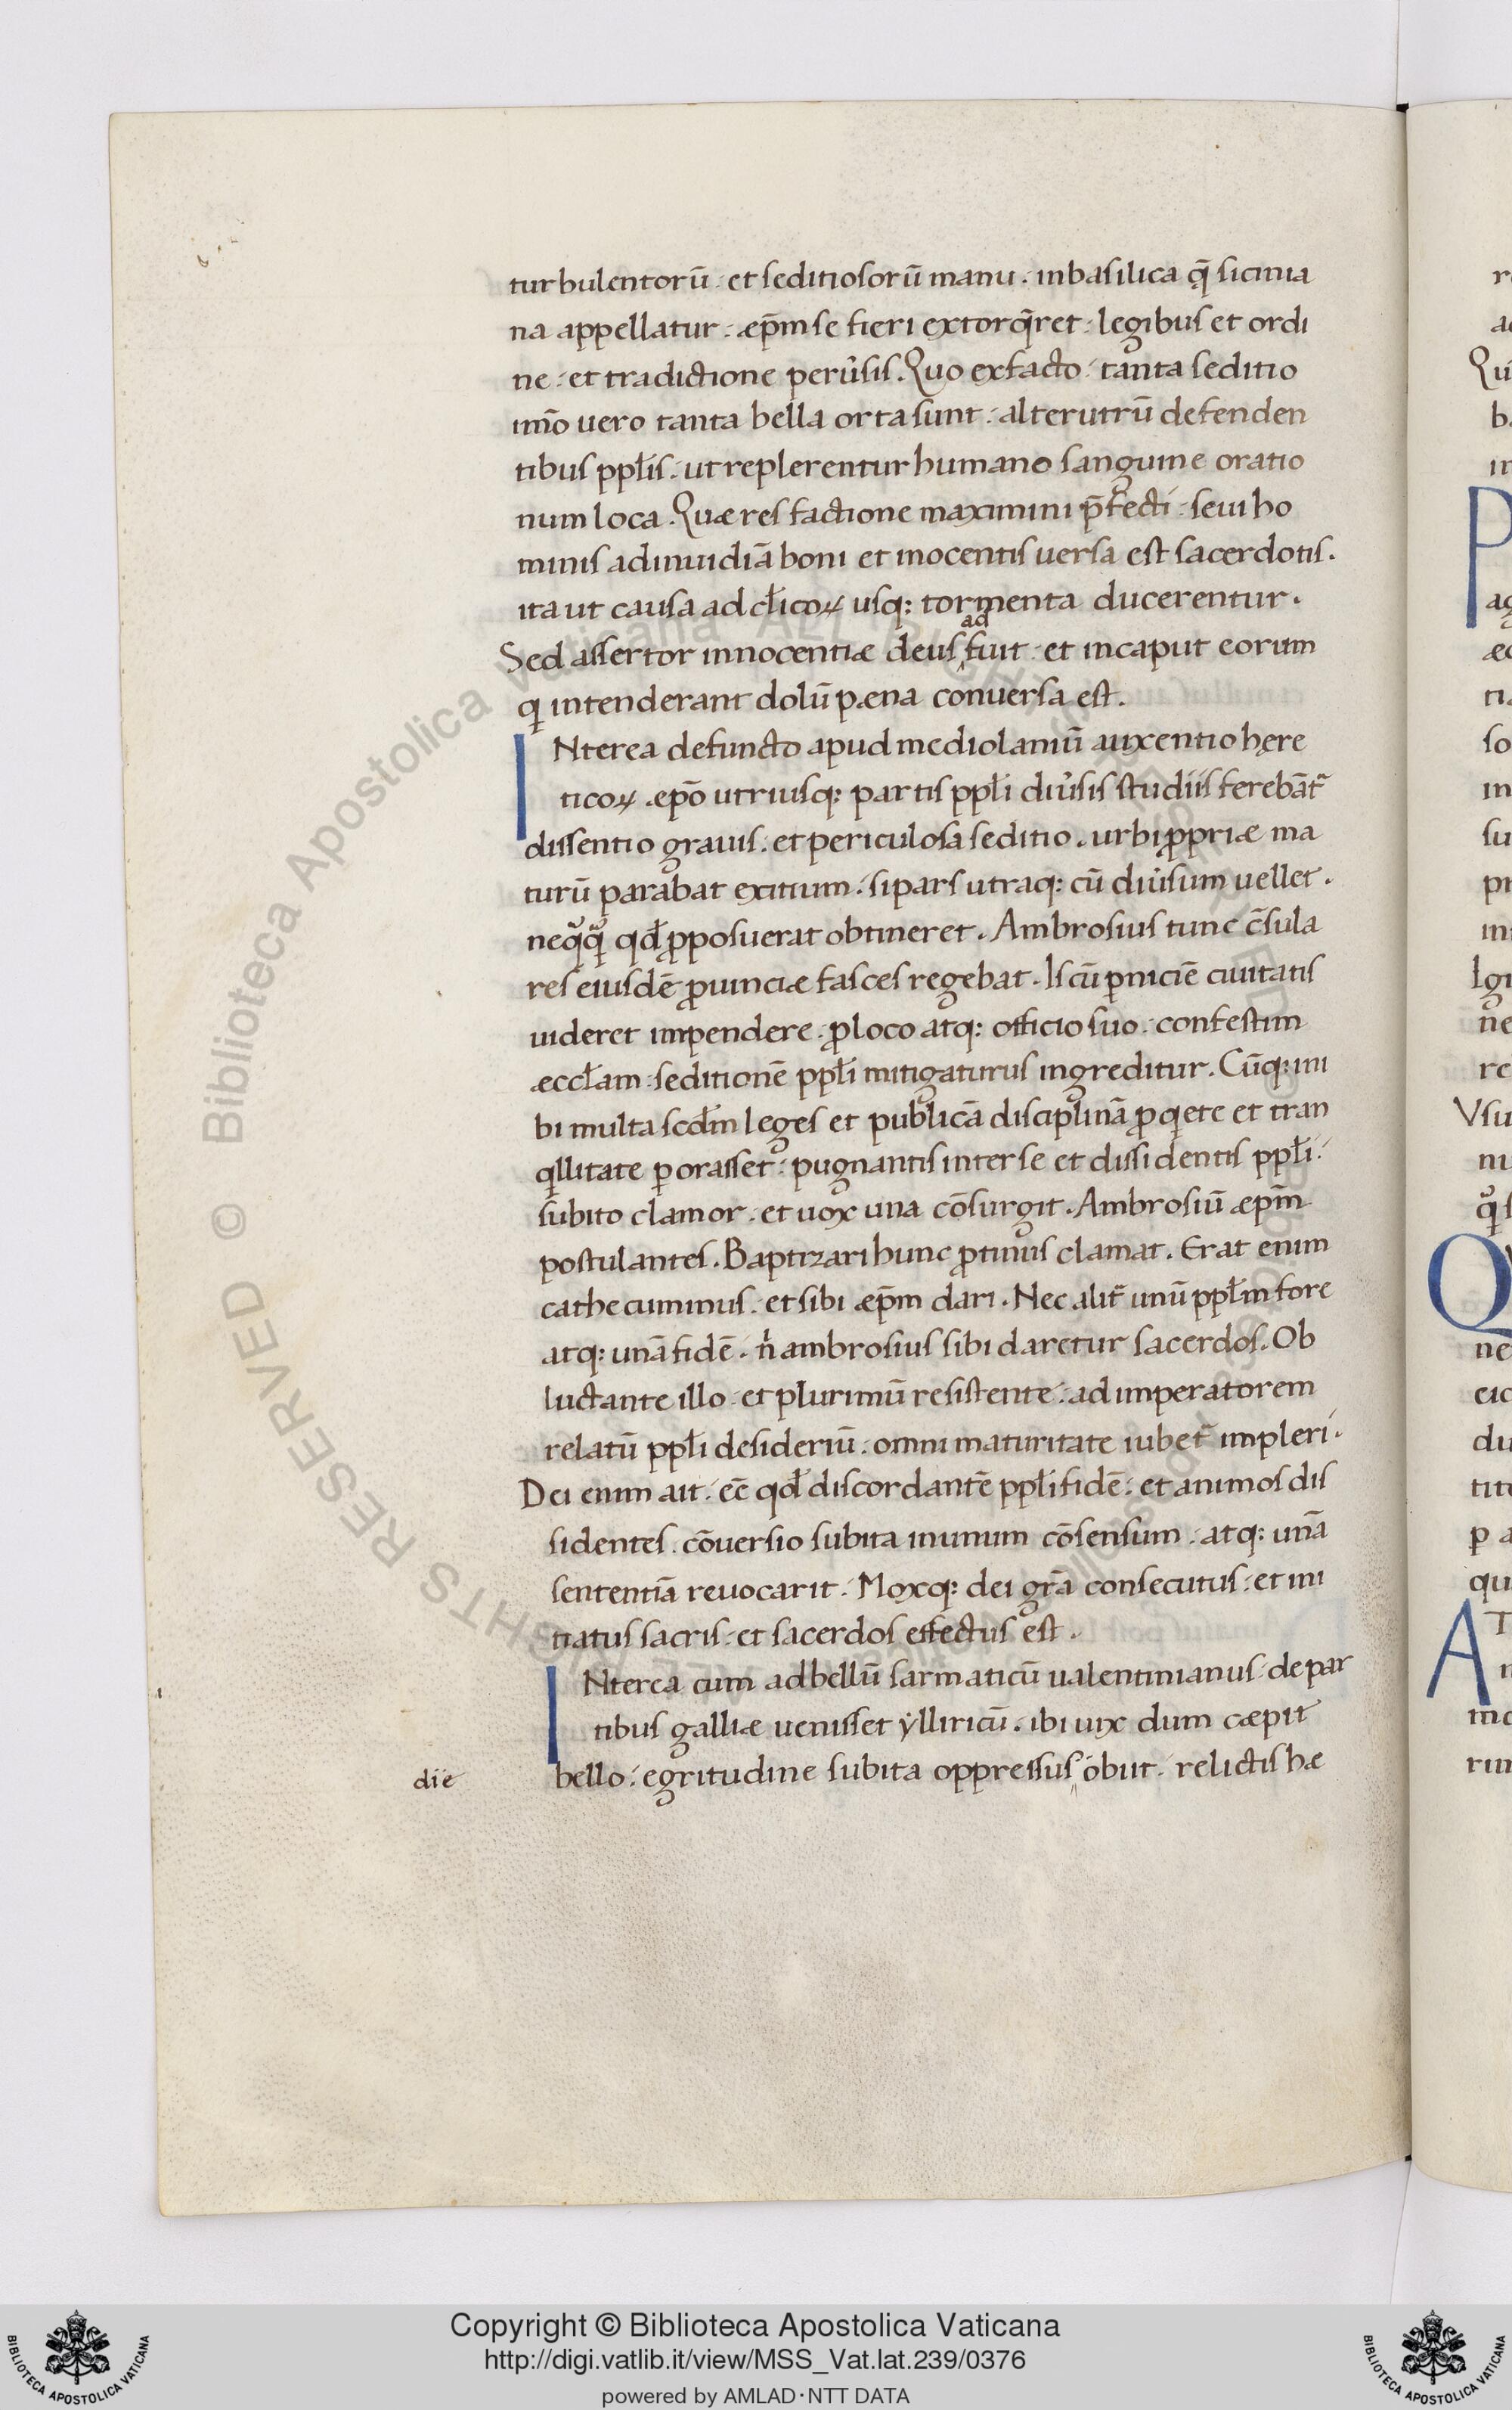 turbulentorū. et seditiosorū manu. in basilica q̄ sicinia
na appellatur. æp̄m se fieri extorq̄ret. legibus et ordi
ne. et tradictione perūsis. Quo ex facto. tanta seditio
im̄o uero tanta bella orta sunt. alterutrū defenden
tibus ppl̄is. ut replerentur humano sanguine oratio
num loca. Quæ res factione maximini p̄fecti. seui ho
minis ad inuidiā boni et inocentis uersa est sacerdotis.
ita ut causa ad cl̄icoꝝ usq: tormenta ducerentur.
Sed assertor innocentiæ deus ad fuit. et in caput eorum
q intenderant dolū pæna conuersa est.
INterea defuncto apud mediolaniū auxentio hęre
ticoꝝ æpō utriusq: partis ppl̄i diūsis studiis ferebāt᷑
dissentio grauis. et periculosa seditio. urbi ꝓpriæ ma
turū parabat exitium. si pars utraq: cū diūsum uellet.
neqͣqͣ qd̄ ꝓposuerat obtineret. Ambrosius tunc c̄sula
res eiusdē ꝓuinciæ fasces regebat. Is cū ꝑniciē ciuitatis
uideret impendere. ꝓ loco atq: officio suo. confestim
æccl̄am. seditionē ppl̄i mitigaturus ingreditur. Cūq: ini
bi multa scd̄m leges et publicā disciplinā ꝓ qiete et tran
qllitate ꝑorasset. pugnantis inter se et dissidentis ppl̄i.
subito clamor. et uox una cōsurgit. Ambrosiū æp̄m
postulantes. Baptizari hunc ꝓtinus clamat. Erat enim
cathecuminus. et sibi æp̄m dari. Nec alit᷑ unū ppl̄m fore
atq: unā fidē. n̄ ambrosius sibi daretur sacerdos. Ob
luctante illo. et plurimū resistente. ad imperatorem
relatū ppl̄i desideriū. omni maturitate iubet᷑ impleri.
Dei enim ait. eē qd̄ discordantē ppl̄i fidē. et animos dis
sidentes. cōuersio subita in unum cōsensum. atq: unā
sententiā reuocarit. Moxq: dei gr̄a consecutus. et ini
tiatus sacris. et sacerdos effectus est.
INterea cum ad bellū sarmaticū ualentinianus. de par
tibus galliæ uenisset ẏlliricū. ibi uix dum cæpit
die bello. egritudine subita oppressus obiit. relictis hæ
Copyright © Biblioteca Apostolica Vaticana
http://digi.vatlib.it/view/MSS_Vat.lat.239/0376
powered by AMLAD·NTT DATA
BIBLIOTECA APOSTOLICA VATICANA
BIBLIOTECA APOSTOLICA VATICANA